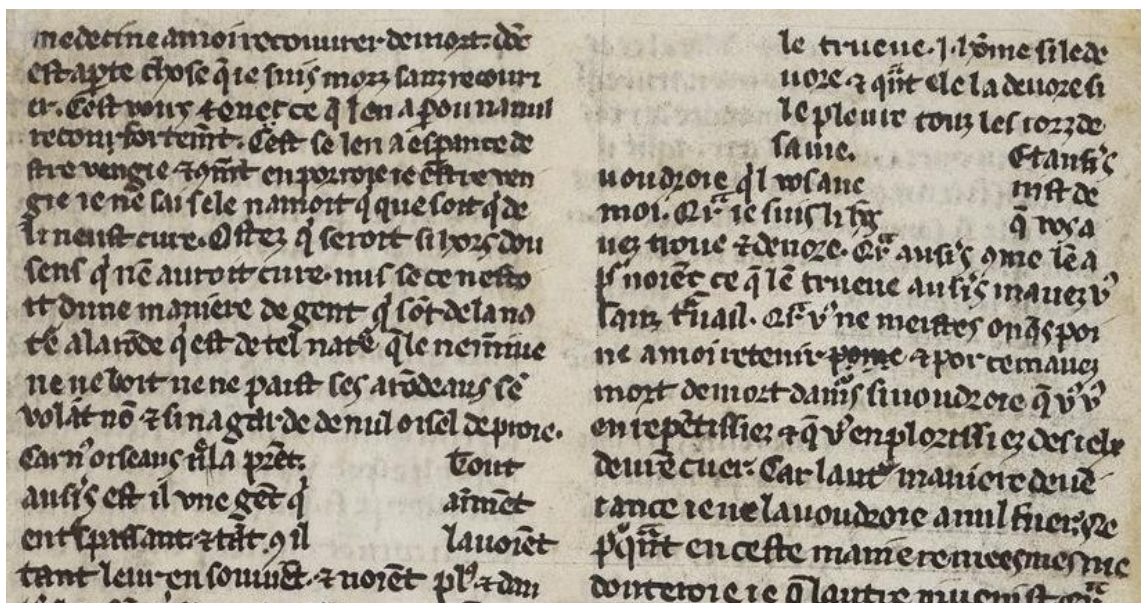 medecine a moi recouurer de mort. dōc
est aꝑte chose q̄ ie suis morz sanz recourt
er. Cest voirs ⁊ one ce q̄ len a pou namil
reconfortem̄t. Cest se len a esꝑance de
stre vengie ⁊ ꝯm̄t en porroie ie estre ven
gie ie ne sai se le namoit q̄ que soit q̄ de
li neust cure. Ostez q̇ seroit si hors dou
sens q̇ nē auroit cure. nus se ce nesto
it dune maniere de gent q̇ sōt de la na
tē a larōde q̇ est de tel natē q̄le ne m̄iue
ne ne boit ne ne paist ses arōdeaus sē
volāt nō ⁊ si na garde de nul oisel de proie.
Car n̾ oiseaus nͥl la prēt. Tout
ausīs est il vne gēt q̇ aīment
ent spassant ⁊ tāt ꝯ il lauoiēt
tant leur en souuēt. ⁊ noiēt pl⁹ ⁊ dau
le trueue .j. hōme si le de
uore. ⁊ qͣt ele la deuore si
le pleure touz les iorz de
sa uie. Et ausīs
uoudroie q̇l vos aue nist de
moi. Qͣr ie suis li q̄ vos a
uez troue ⁊ deuore. Qͣr ausīs ꝯme lē a
p̾ noiēt ce q̄ lē trueue ausīs mauez v̾
sanz t̾uail. Qͣr v̾ ne meistes onq̄s poi
ne a moi retenir ⁊ por ce mauez
mort de mort dam̾s si uoudroie q̄ v̾ v̾
en repētissiez ⁊ q̄ v̾ en plorissiez des ielx
de urē cuer. Car laut̾ maniere de uē
iance ie ne la uoudroie a nul fuer. Ne
p̾qͣt en ceste maniere meesmes me
douteroie ie q̄ lautre